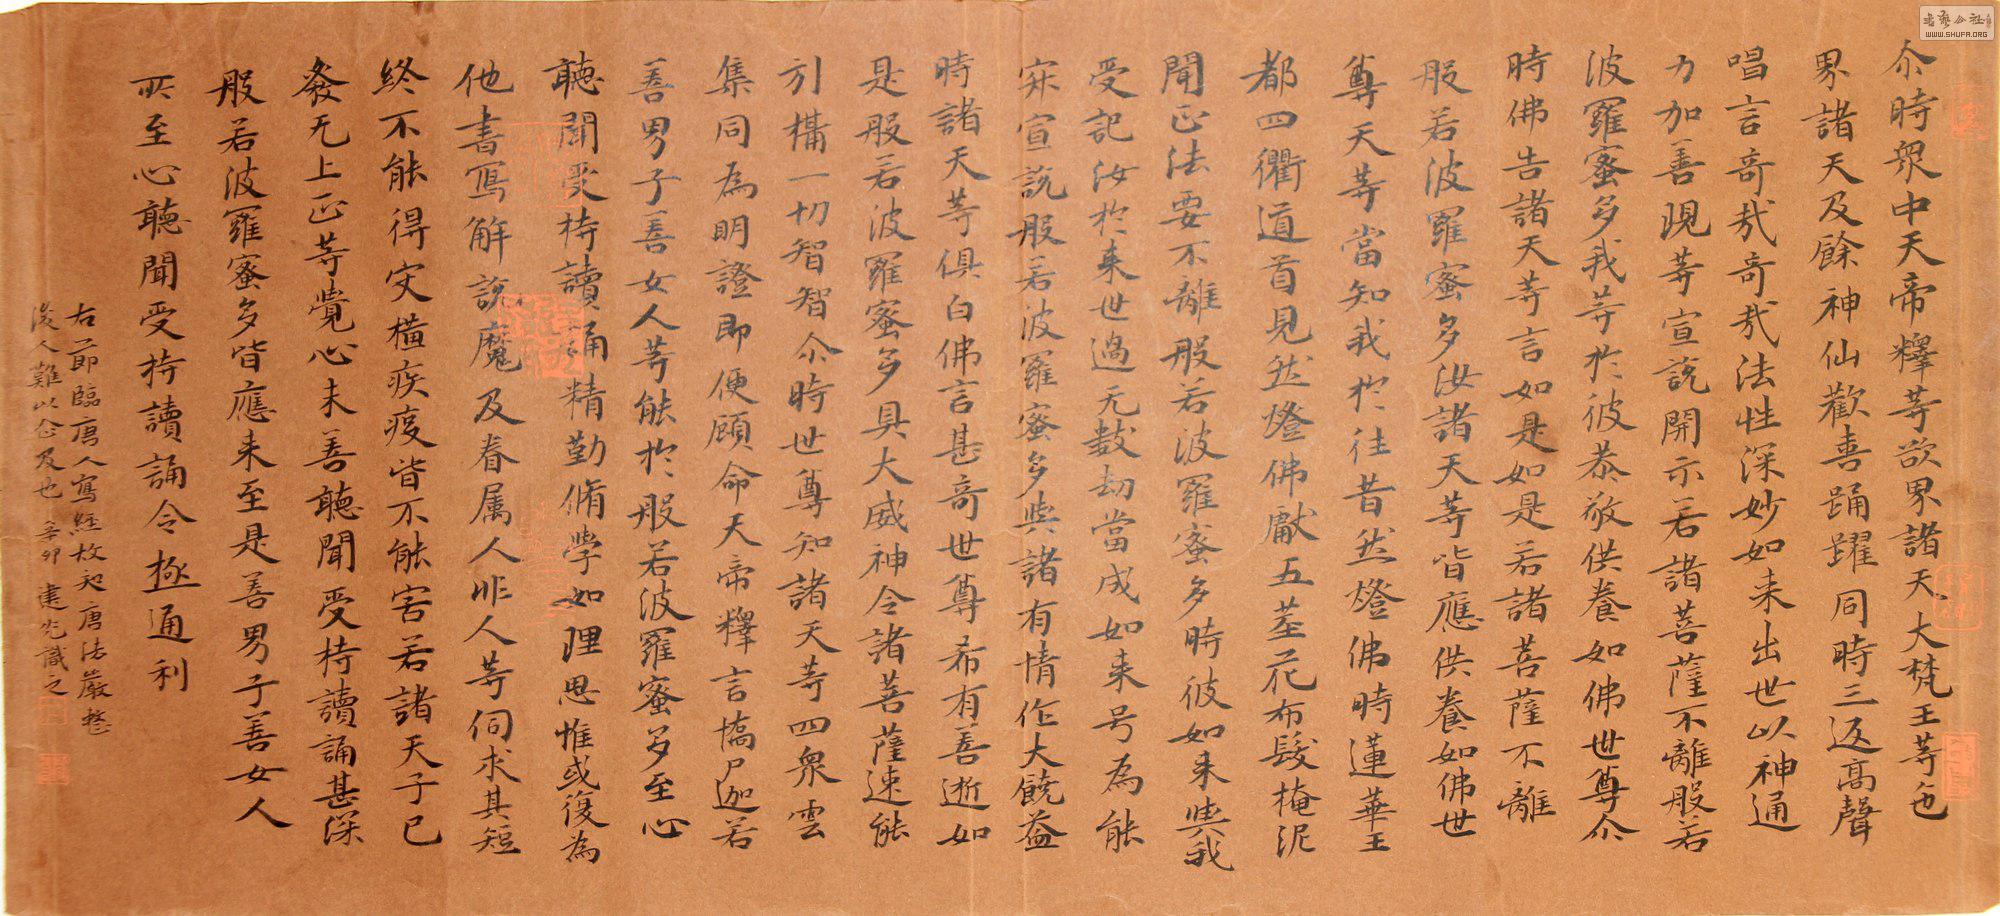 尒時衆中天帝釋等欲界諸天大梵王等色
界諸天及餘神仙歡喜踊躍同時三返髙聲
唱言奇㢤奇㢤法性深妙如来出世以神通
力加善現等宣說開示若諸菩薩不離般若
波羅蜜多我等扵彼恭敬供養如佛世尊尒
時佛告諸天等言如是如是若諸菩薩不離
般若波羅蜜多汝諸天等皆應供養如佛世
尊天等當知我扵往昔然燈佛時蓮華王
都四衢道首見然燈佛獻五莖花布髮掩泥
聞正法要不離般若波羅蜜多時彼如来與我
受記汝扵来世過无數劫當成如来号為能
寂宣說般若波羅蜜多與諸有情作大饒益
時諸天等俱白佛言甚奇世尊希有善逝如
是般若波羅蜜多具大威神令諸菩薩速能
引攝一切智智尒時世尊知諸天等四衆雲
集同為明證即便顧命天帝釋言憍尸迦若
善男子善女人等能扵般若波羅蜜多至心
聽聞受持讀誦精勤脩學如理思惟或復為
他書寫解說魔及眷属人非人等伺求其短
終不能得灾橫疾疫皆不能害若諸天子已
發无上正等覺心未善聽聞受持讀誦甚深
般若波羅蜜多皆應来至是善男子善女人
所至心聽聞受持讀誦令極通利
右節臨唐人寫經故知唐法嚴整
後人難以企及也 辛卯 建光識之
書藝公社
WWW.SHUFA.ORG